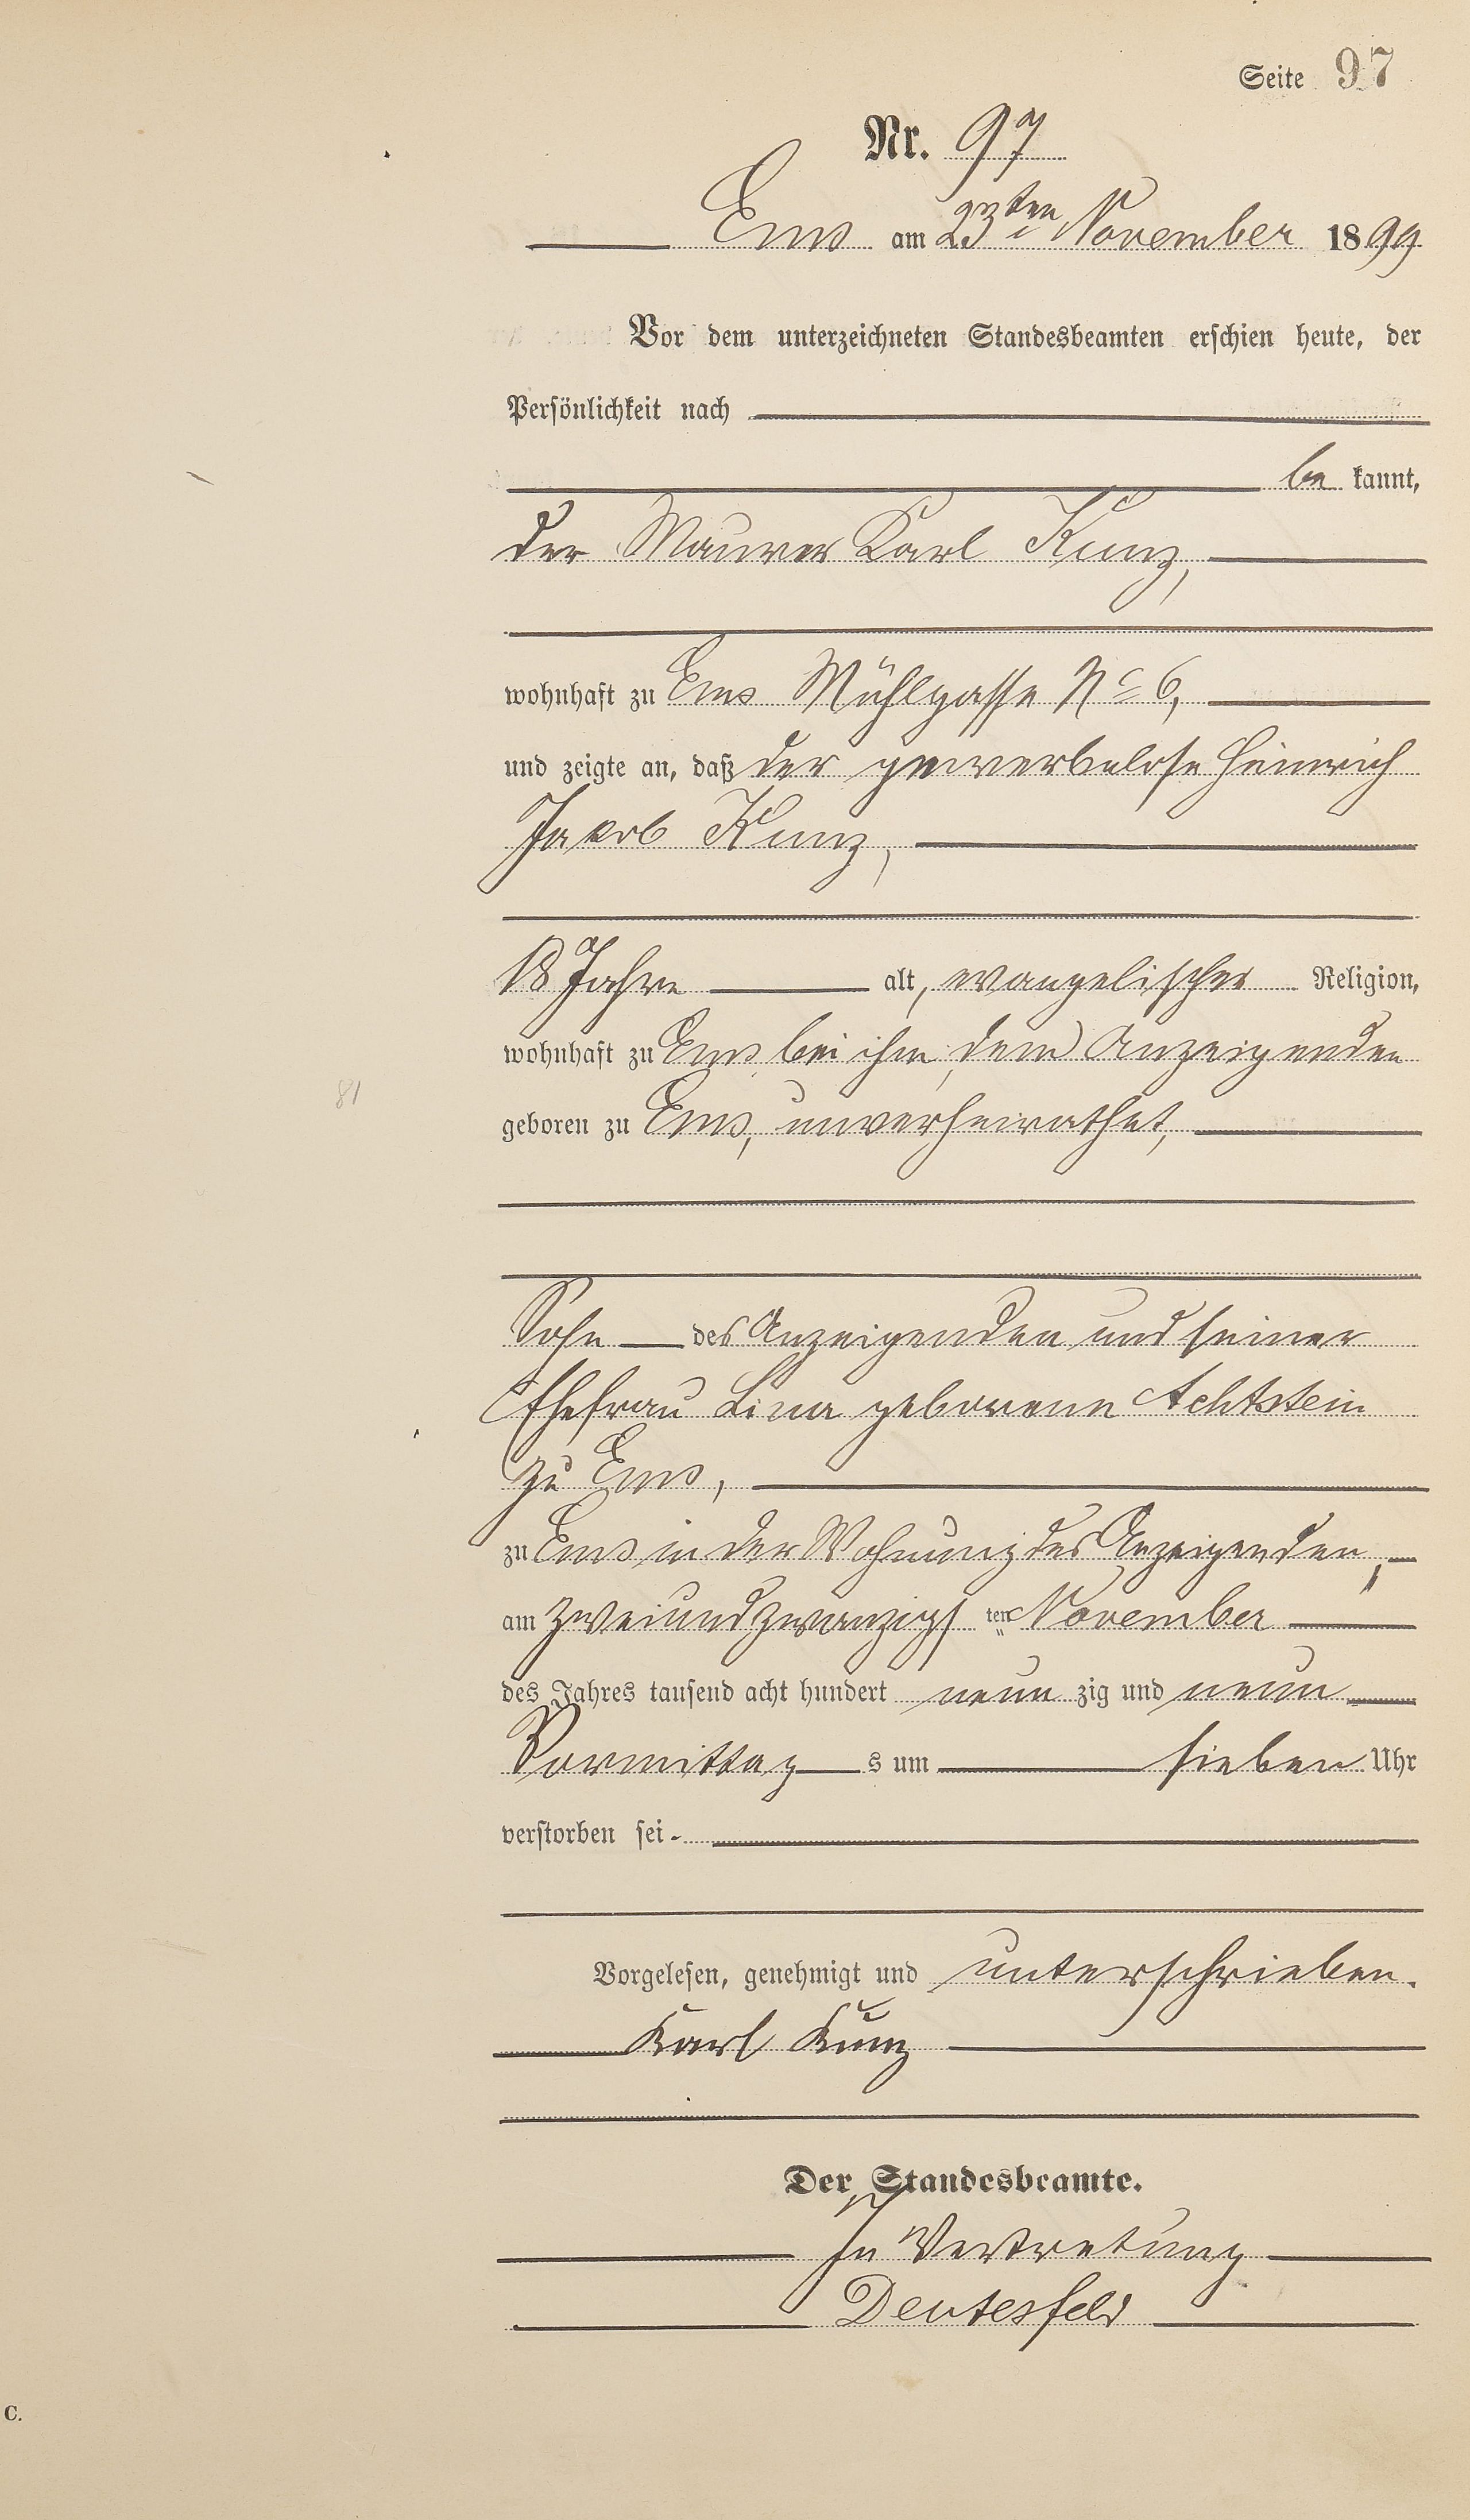 Seite 97
Nr. 97
Ems am 23ten November 1899
Vor dem unterzeichneten Standesbeamten erschien heute, der
Persönlichkeit nach
be kannt,
der Maurer Karl Kunz,
wohnhaft zu Ems Mühlgasse No 6,
und zeigte an, daß der gewerbelose Heinrich
Jakob Kunz,
18 Jahre alt, evangelischer Religion,
wohnhaft zu Ems, bei ihm, dem Anzeigenden
geboren zu Ems, unverheirathet,
81
Sohn des Anzeigenden und seiner
Ehefrau Lina geborenen Achtstein
zu Ems,
zu Ems in der Wohnung des Anzeigenden,
am zweiundzwanzigs ten November
des Jahres tausend acht hundert neun zig und neun
Vormittag s um sieben Uhr
verstorben sei.
Vorgelesen, genehmigt und unterschrieben.
Karl Kunz
Der Standesbeamte.
In Vertretung
Deutesfeld
C.